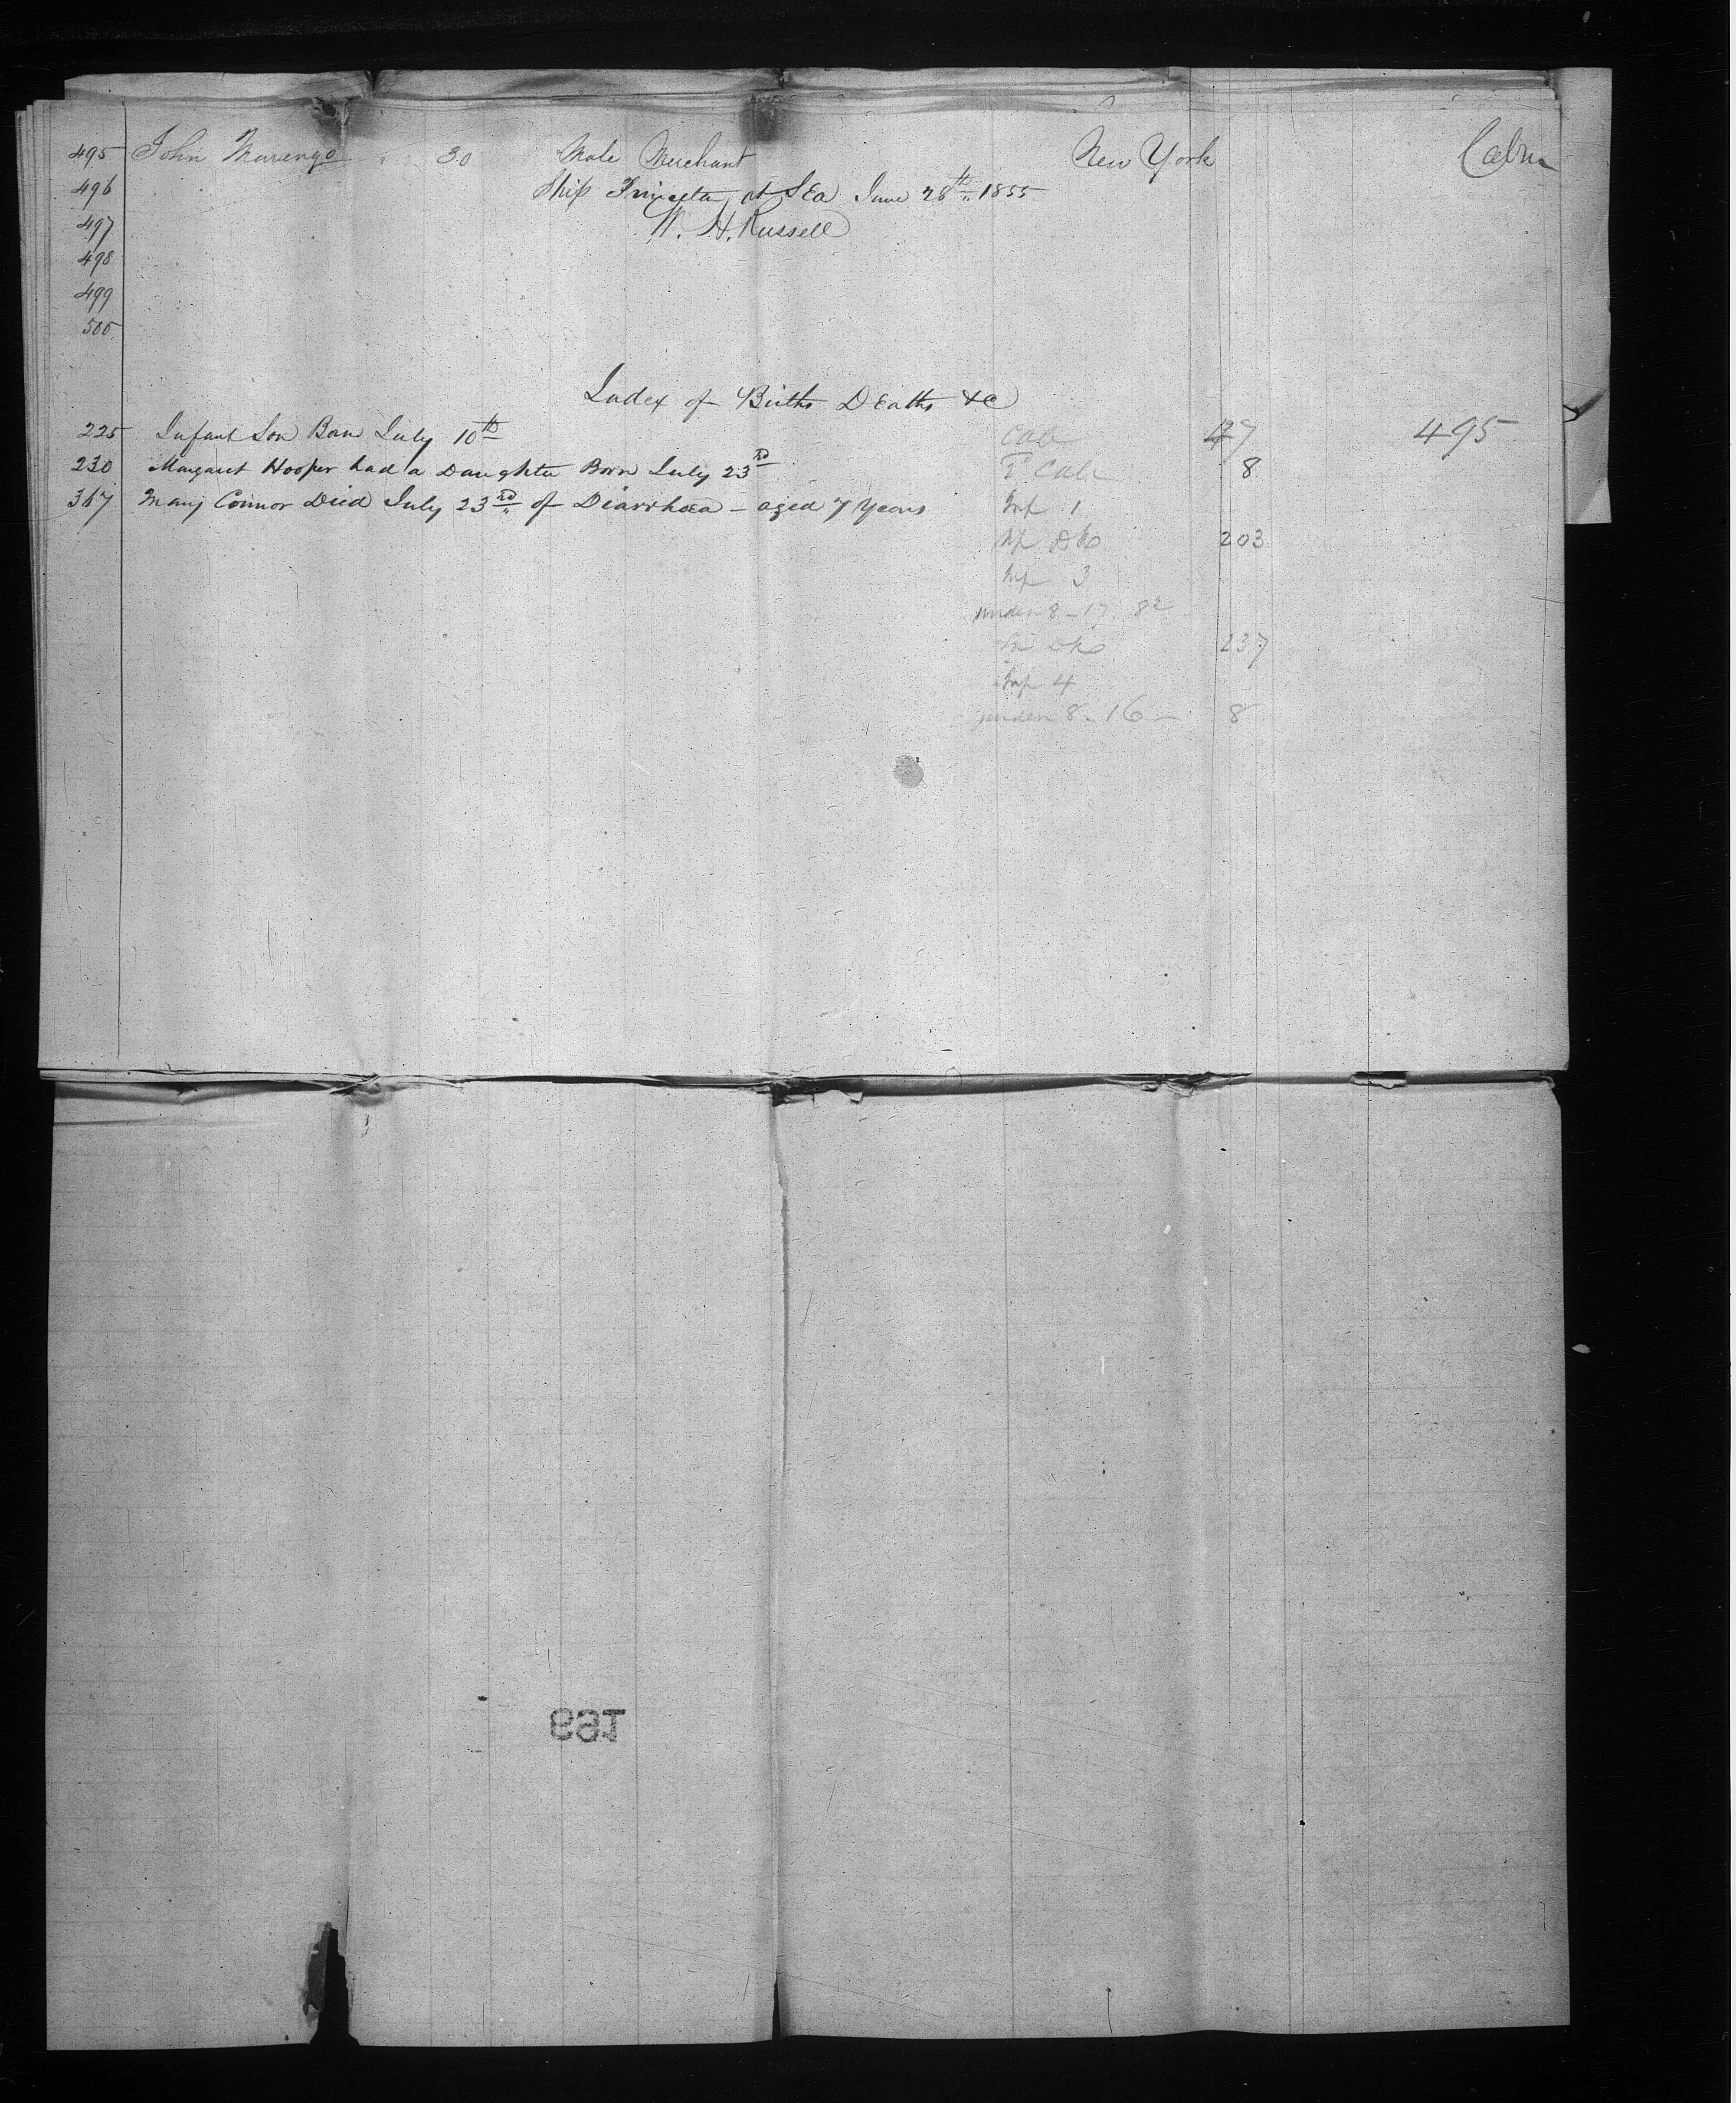 495 John Marengo 30 Male Merchant New York Cabin
496 Ship Princeton at Sea June 28th 1855
497 W. H. Russell
498
499
500
Index of Births Deaths &c
225 Infant Son Born July 10th Cab 37 495
230 Margaret Hooper had a Daughter Born July 23rd 2d Cab 8
317 Mary Connor Died July 23rd of Diarrhoea - aged 7 Years Inf 1
Up Dk 203
Inf 3
under 8 - 17
Dk 237
Inf 4
under 8 - 16 - 8
169